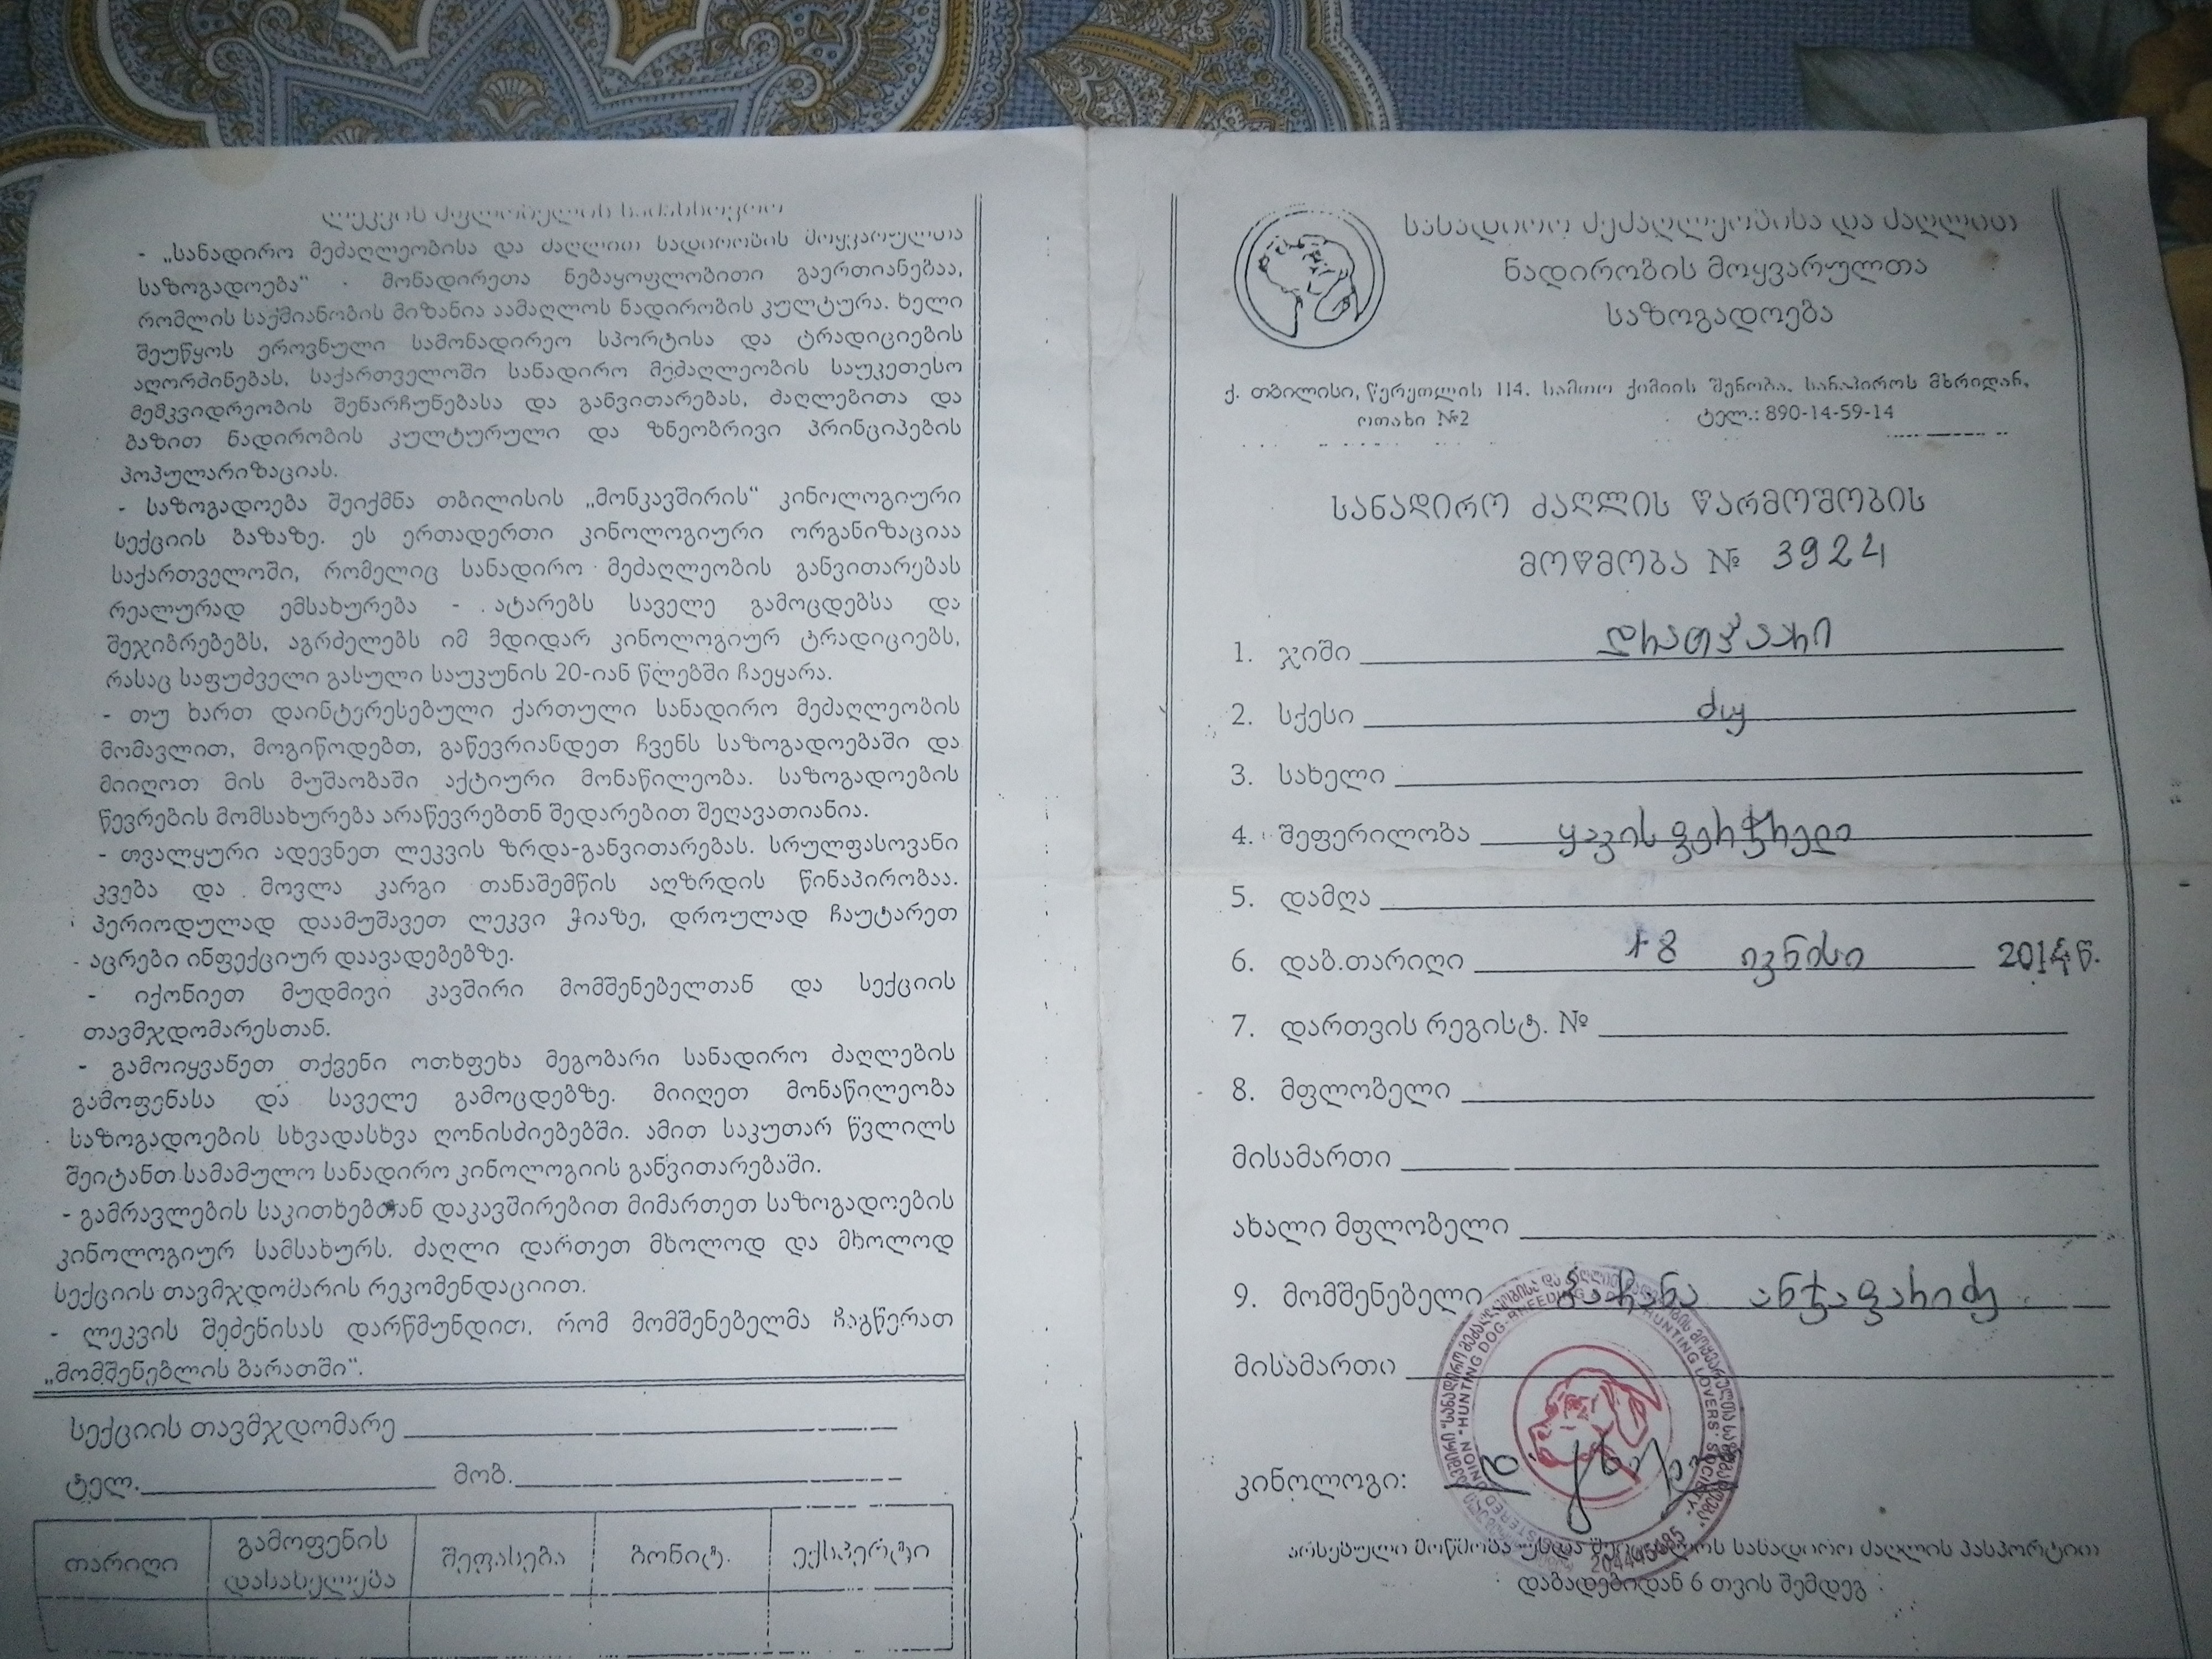 ლეკვის მფლობელის საყურადღებოდ
- „სანადირო მეძაღლეობისა და ძაღლით ნადირობის მოყვარულთა
საზოგადოება“ - მონადირეთა ნებაყოფლობითი გაერთიანებაა,
რომლის საქმიანობის მიზანია აამაღლოს ნადირობის კულტურა. ხელი
შეუწყოს ეროვნული სამონადირეო სპორტისა და ტრადიციების
აღორძინებას, საქართველოში სანადირო მეძაღლეობის საუკეთესო
მემკვიდრეობის შენარჩუნებასა და განვითარებას, ძაღლებითა და
ბაზით ნადირობის კულტურული და ზნეობრივი პრინციპების
პოპულარიზაციას.
- საზოგადოება შეიქმნა თბილისის „მონკავშირის“ კინოლოგიური
სექციის ბაზაზე. ეს ერთადერთი კინოლოგიური ორგანიზაციაა
საქართველოში, რომელიც სანადირო მეძაღლეობის განვითარებას
რეალურად ემსახურება - ატარებს საველე გამოცდებსა და
შეჯიბრებებს, აგრძელებს იმ მდიდარ კინოლოგიურ ტრადიციებს,
რასაც საფუძველი გასული საუკუნის 20-იან წლებში ჩაეყარა.
- თუ ხართ დაინტერესებული ქართული სანადირო მეძაღლეობის
მომავლით, მოგიწოდებთ, გაწევრიანდეთ ჩვენს საზოგადოებაში და
მიიღოთ მის მუშაობაში აქტიური მონაწილეობა. საზოგადოების
წევრების მომსახურება არაწევრებთნ შედარებით შეღავათიანია.
- თვალყური ადევნეთ ლეკვის ზრდა-განვითარებას. სრულფასოვანი
კვება და მოვლა კარგი თანაშემწის აღზრდის წინაპირობაა.
პერიოდულად დაამუშავეთ ლეკვი ჭიაზე, დროულად ჩაუტარეთ
აცრები ინფექციურ დაავადებებზე.
- იქონიეთ მუდმივი კავშირი მომშენებელთან და სექციის
თავმჯდომარესთან.
- გამოიყვანეთ თქვენი ოთხფეხა მეგობარი სანადირო ძაღლების
გამოფენასა და საველე გამოცდებზე. მიიღეთ მონაწილეობა
საზოგადოების სხვადასხვა ღონისძიებებში. ამით საკუთარ წვლილს
შეიტანთ სამამულო სანადირო კინოლოგიის განვითარებაში.
- გამრავლების საკითხებთან დაკავშირებით მიმართეთ საზოგადოების
კინოლოგიურ სამსახურს. ძაღლი დართეთ მხოლოდ და მხოლოდ
სექციის თავმჯდომარის რეკომენდაციით.
- ლეკვის შეძენისას დარწმუნდით, რომ მომშენებელმა ჩაგწერათ
„მომშენებლის ბარათში“.
სექციის თავმჯდომარე
ტელ. მობ.
თარიღი გამოფენის დასახელება შეფასება ბონიტ. ექსპერტი
სანადირო მეძაღლეობისა და ძაღლით
ნადირობის მოყვარულთა
საზოგადოება
ქ. თბილისი, წერეთლის 114. სამთო ქიმიის შენობა, სანაპიროს მხრიდან,
ოთახი №2 ტელ.: 890-14-59-14
სანადირო ძაღლის წარმოშობის
მოწმობა № 3924
1. ჯიში დრათჰაარი
2. სქესი ძუ
3. სახელი
4. შეფერილობა ყავისფერჭრელი
5. დამღა
6. დაბ.თარიღი 18 ივნისი 2014 წ.
7. დართვის რეგისტ. №
8. მფლობელი
მისამართი
ახალი მფლობელი
9. მომშენებელი ბაჩანა ანჯაფარიძე
მისამართი
კინოლოგი:
HUNTING DOG-BREEDING HUNTING LOVERS' SOCIETY
204445485
არსებული მოწმობა უნდა შეიცვალოს სანადირო ძაღლის პასპორტით
დაბადებიდან 6 თვის შემდეგ